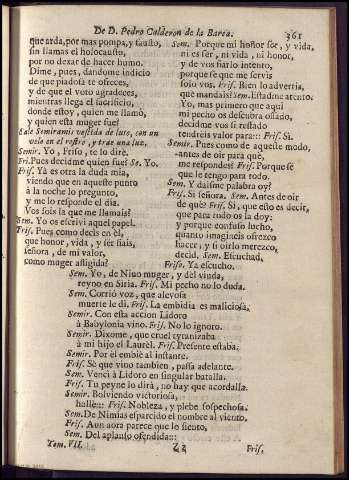 De D. Pedro Calderon de la Barca.
361
que arda, por mas pompa, y fausto,
sin llamas el holocausto,
por no dexar de hacer humo.
Dime, pues, dandome indicio
de que piadosa te ofreces,
y de que el voto agradeces,
mientras llega el sacrificio,
donde estoy, quien me llamò,
y quien esta muger fue?
Sale Semiramis vestida de luto, con un
velo en el rostro, y trae una luz.
Semir. Yo, Friso, te lo dirè.
Fri. Pues decidme quien fue? Se. Yo.
Fris. Yà es otra la duda mia,
viendo que en aqueste punto
à la noche lo pregunto,
y me lo responde el dia.
Vos sois la que me llamais?
Sem. Yo os escriví aquel papel.
Fris. Pues como decis en èl,
que honor, vida, y ser fiais,
señora, de mi valor,
como muger afligida?
Sem. Porque mi honor ser, y vida,
ni es ser, ni vida, ni honor,
y de vos fiarlo intento,
porque sè que me servis
solo vos. Fris. Bien lo advertia,
què mandais? Sem. Estadme atento.
Yo, mas primero que aqui
mi pecho os descubra ossado,
decidme vos si restado
tendreis valor para:: Fris. Si.
Semir. Pues como de aqueste modo,
antes de oir para què,
me respondes? Fris. Porque sè
que le tengo para todo.
Sem. Y daisme palabra oy?
Fris. Si señora. Sem. Antes de oir
de què? Fris. Si, que esto es decir,
que para todo os la doy:
y porque confuso lucho,
quanto imagineis ofrezco
hacer; y si oirlo merezco,
decid. Sem. Escuchad,
Friso. Ya escucho.
Sem. Yo, de Nino muger, y del viuda,
reyno en Siria. Fris. Mi pecho no lo duda.
Sem. Corriò voz, que alevosa
muerte le dì. Fris. La embidia es maliciosa.
Semir. Con esta accion Lidoro
à Babylonia vino. Fris. No lo ignoro.
Semir. Dixome, que cruel tyranizaba
à mi hijo el Laurèl. Fris. Presente estaba.
Semir. Por èl embiè al instante.
Fris. Sè que vino tambien, passa adelante.
Sem. Vencì à Lidoro en singular batalla.
Fris. Tu peyne lo dirà, no hay que acordalla.
Semir. Bolviendo victoriosa,
hallè:: Fris. Nobleza, y plebe sospechosa.
Sem. De Nimias esparcido el nombre al viento.
Fris. Aun aora parece que lo siento,
Sem. Del aplauso ofendida::
Tom. VII.
Zz
Fris.